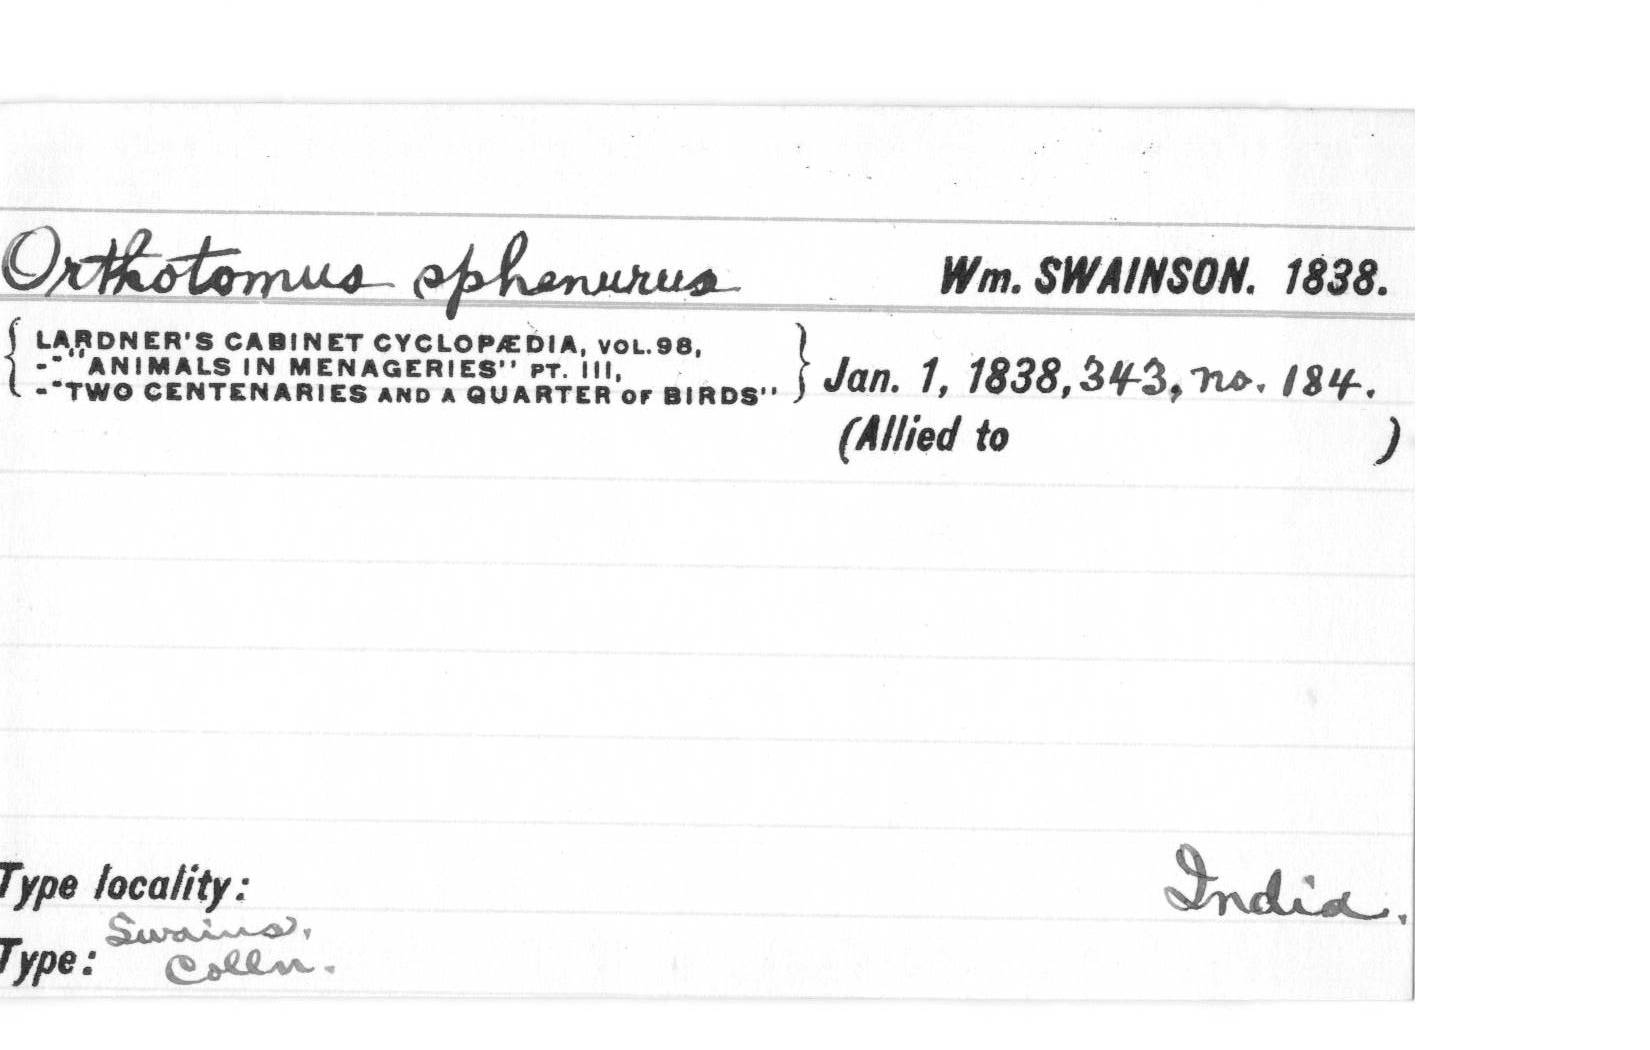 Orthotomus sphenurus Wm. SWAINSON. 1838.
{ LARDNER'S CABINET CYCLOPÆDIA, VOL.98,
-"ANIMALS IN MENAGERIES" PT. III,
-"TWO CENTENARIES AND A QUARTER OF BIRDS" } Jan. 1, 1838, 343, no. 184.
(Allied to )
Type locality: India.
Swains.
Type: Colln.